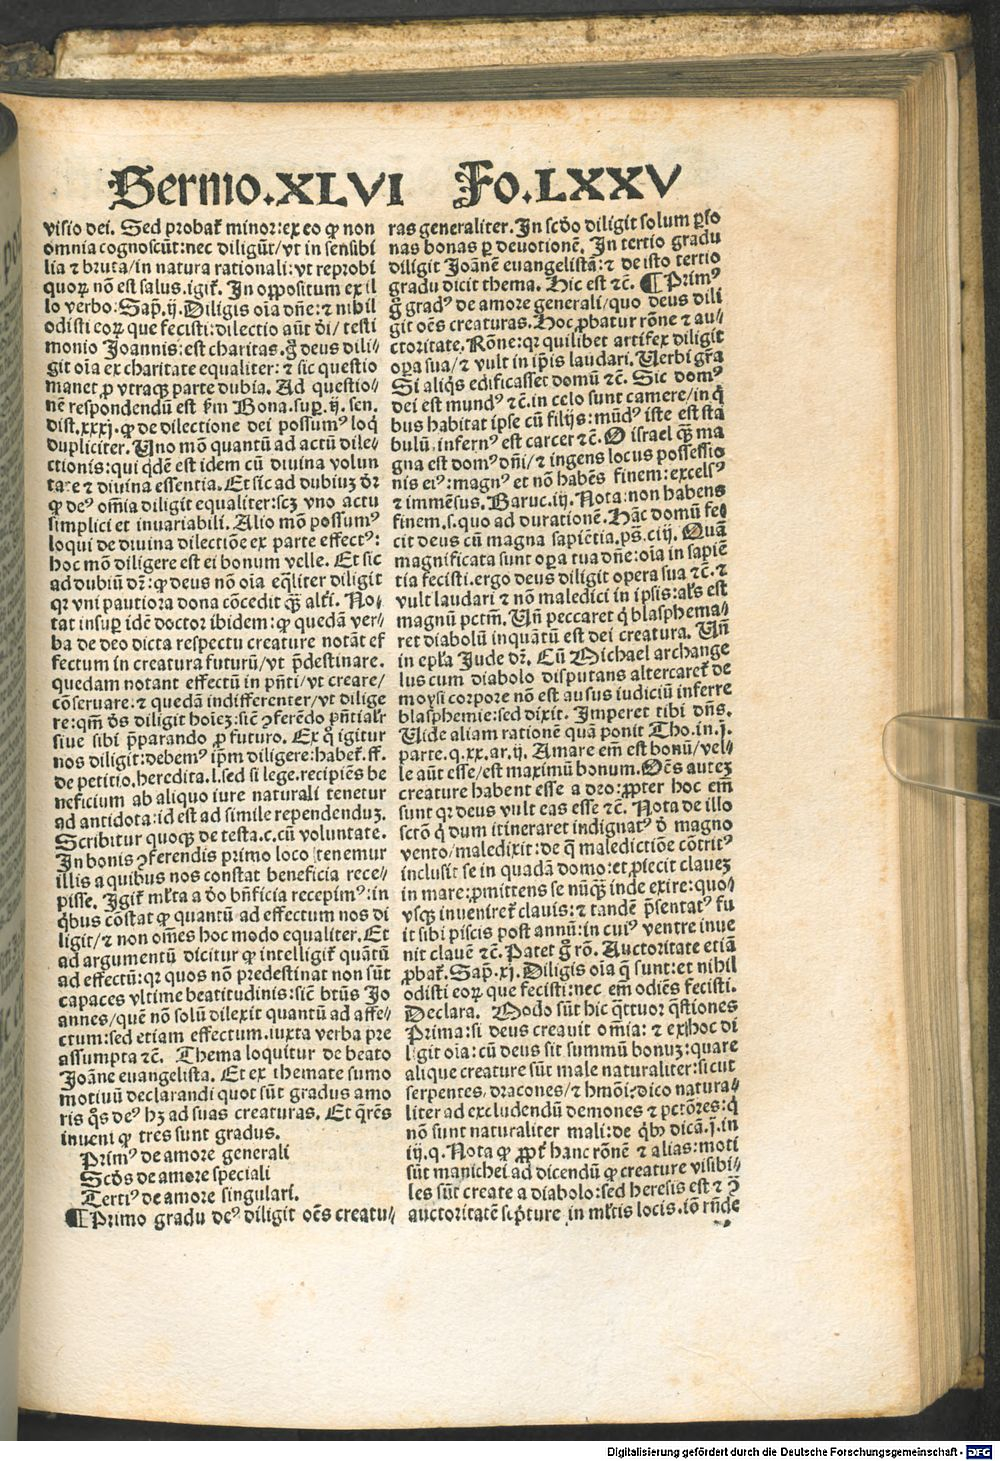 Sermo.XLVI Fo.LXXV
visio dei. Sed probat᷑ minor: ex eo ꝙ non
omnia cognoscūt: nec diligūt/ vt in sensibi
lia ⁊ bruta/ in natura rationali: vt reprobi
quoꝝ nō est salus. igit᷑. In oppositum ex il
lo verbo: Sap̄. ij. Diligis oīa dn̄e: ⁊ nihil
odisti eoꝝ que fecisti: dilectio aūt dei/ testi
monio Joannis: est charitas. g̊ deus dili//
git oīa ex charitate equaliter: ⁊ sic questio
manet ꝓ vtraqꝫ parte dubia. Ad questio//
nē respondendū est s̄m Bona. sup̄. ij. sen.
dist. xxxj. ꝙ de dilectione dei possumꝰ loq̇
dupliciter. Uno mō quantū ad actū dile//
ctionis: qui qdē est idem cū diuina volun
tate ⁊ diuina essentia. Et sic ad dubiuꝫ dr̄
ꝙ deꝰ om̄ia diligit equaliter: scꝫ vno actu
simplici et inuariabili. Alio mō possumꝰ
loqui de diuina dilectiōe ex parte effectꝰ:
hoc mō diligere est ei bonum velle. Et sic
ad dubiū dr̄: ꝙ deus nō oīa eq̄liter diligit
qꝛ vni pautiora dona cōcedit q̄ꝫ alt᷑i. No//
tat insup̄ idē doctor ibidem: ꝙ quedā ver//
ba de deo dicta respectu creature notāt ef
fectum in creatura futurū/ vt p̄destinare.
quedam notant effectū in pn̄ti/ vt creare/
cōseruare: ⁊ quedā indifferenter/ vt dilige
re: qm̄ de̅s diligit hoīeꝫ: siue ꝯferēdo pn̄tialr̄
siue sibi p̄parando ꝓ futuro. Ex q̊ igitur
nos diligit: debemꝰ ip̄m diligere: habet᷑. ff.
de petitio. heredita. l. sed si lege. recipiēs be
neficium ab aliquo iure naturali tenetur
ad antidota: id est ad simile rependenduꝫ.
Scribitur quoqꝫ de testa. c. cū voluntate.
In bonis ꝯferendis primo loco tenemur
illis a quibus nos constat beneficia rece//
pisse. Igit᷑ ml̄ta a deo bn̄ficia recepimꝰ: in
q̇bus cōstat ꝙ quantū ad effectum nos di
ligit/ ⁊ non om̄es hoc modo equaliter. Et
ad argumentū dicitur ꝙ intelligit᷑ quātū
ad effectū: qꝛ quos non predestinat non sūt
capaces vltime beatitudinis: sicē btūs Jo
annes/ quē nō solū dilexit quantū ad affe//
ctum: sed etiam effectum. iuxta verba pre
assumpta ⁊c̄. Thema loquitur de beato
Joāne euangelista. Et ex themate sumo
motiuū declarandi quot sūt gradus amo
ris q̊s deꝰ hꝫ ad suas creaturas. Et q̄rēs
inueni ꝙ tres sunt gradus.
Primꝰ de amore generali
Scd̄s de amore speciali
Tertiꝰ de amore singulari.
¶ Primo gradu deꝰ diligit oēs creatu//
ras generaliter. In scd̄o diligit solum ꝑso
nas bonas ꝑ deuotionē. In tertio gradu
diligit Joānē euangelistā: ⁊ de isto tertio
gradu dicit thema. Hic est ⁊c̄. ¶ Primꝰ
g̊ gradꝰ de amore generali/ quo deus dili
git oēs creaturas. Hoc ꝓbatur rōne ⁊ au//
ctoritate. Rōne: qꝛ quilibet artifex diligit
oꝑa sua/ ⁊ vult in ip̄is laudari. Uerbi gr̄a
Si aliq̇s edificasset domū ⁊c̄. Sic domꝰ
dei est mundꝰ ⁊c̄. in celo sunt camere/ in q̇
bus habitat ipse cū filijs: mūdꝰ iste est sta
bulū, infernꝰ est carcer ⁊c̄. O israel q̄ꝫ ma
gna est domꝰ dn̄i/ ⁊ ingens locus possessio
nis eiꝰ: magnꝰ et nō habēs finem: excelsꝰ
⁊ immēsus. Baruc. iij. Nota: non habens
finem. s. quo ad durationē. Hāc domū fe//
cit deus cū magna sapiētia. ps̄. ciij. Quā
magnificata sunt oꝑa tua dn̄e: oīa in sapiē
tia fecisti. ergo deus diligit opera sua ⁊c̄. ⁊
vult laudari ⁊ nō maledici in ipsis: al's est
magnū pctm̄. Un̄ peccaret q̇ blasphema//
ret diabolū inquātū est dei creatura. Un̄
in epl'a Jude dr̄. Cū Michael archange
lus cum diabolo disputans altercaret᷑ de
moysi corpore nō est ausus iudiciū inferre
blasphemie: sed dixit. Imperet tibi dn̄s.
Uide aliam rationē quā ponit Tho. in. j.
parte. q. xx. ar. ij. Amare em̄ est bonū/ vel//
le aūt esse/ est maximū bonum. Oēs auteꝫ
creature habent esse a deo: ꝓpter hoc em̄
sunt qꝛ deus vult eas esse ⁊c̄. Nota de illo
sctō q̇ dum itineraret indignatꝰ de magno
vento/ maledixit: de q̄ maledictiōe cōtritꝰ
inclusit se in quadā domo: et ꝓiecit claueꝫ
in mare: ꝓmittens se nūq̄ꝫ inde exire: quo//
vsqꝫ inueniret᷑ clauis: ⁊ tandē p̄sentatꝰ fu
it sibi piscis post annū: in cuiꝰ ventre inue
nit clauē ⁊c̄. Patet g̊ rō. Auctoritate etiā
ꝓbat᷑. Sap̄. xj. Diligis oīa q̄ sunt: et nihil
odisti eoꝝ que fecisti: nec em̄ odiēs fecisti.
Declara. Modo sūt hic q̄ttuor q̄stiones
Prima: si deus creauit om̄ia: ⁊ ex hoc di
ligit oīa: cū deus sit summū bonuꝫ: quare
alique creature sūt male naturaliter: sicut
serpentes, dracones/ ⁊ hmōi: dico natura//
liter ad excludendū demones ⁊ pctōres: q̇
nō sunt naturaliter mali: de q̇bꝰ dicā. j. in
iij. q. Nota ꝙ ꝓpt᷑ hanc rōnē ⁊ alias: moti
sūt manichei ad dicendū ꝙ creature visibi//
les sūt create a diabolo: sed heresis est ⁊ ꝯ̄
auctoritatē scpture in ml̄tis locis. iō rn̄de
Digitalisierung gefördert durch die Deutsche Forschungsgemeinschaft - DFG